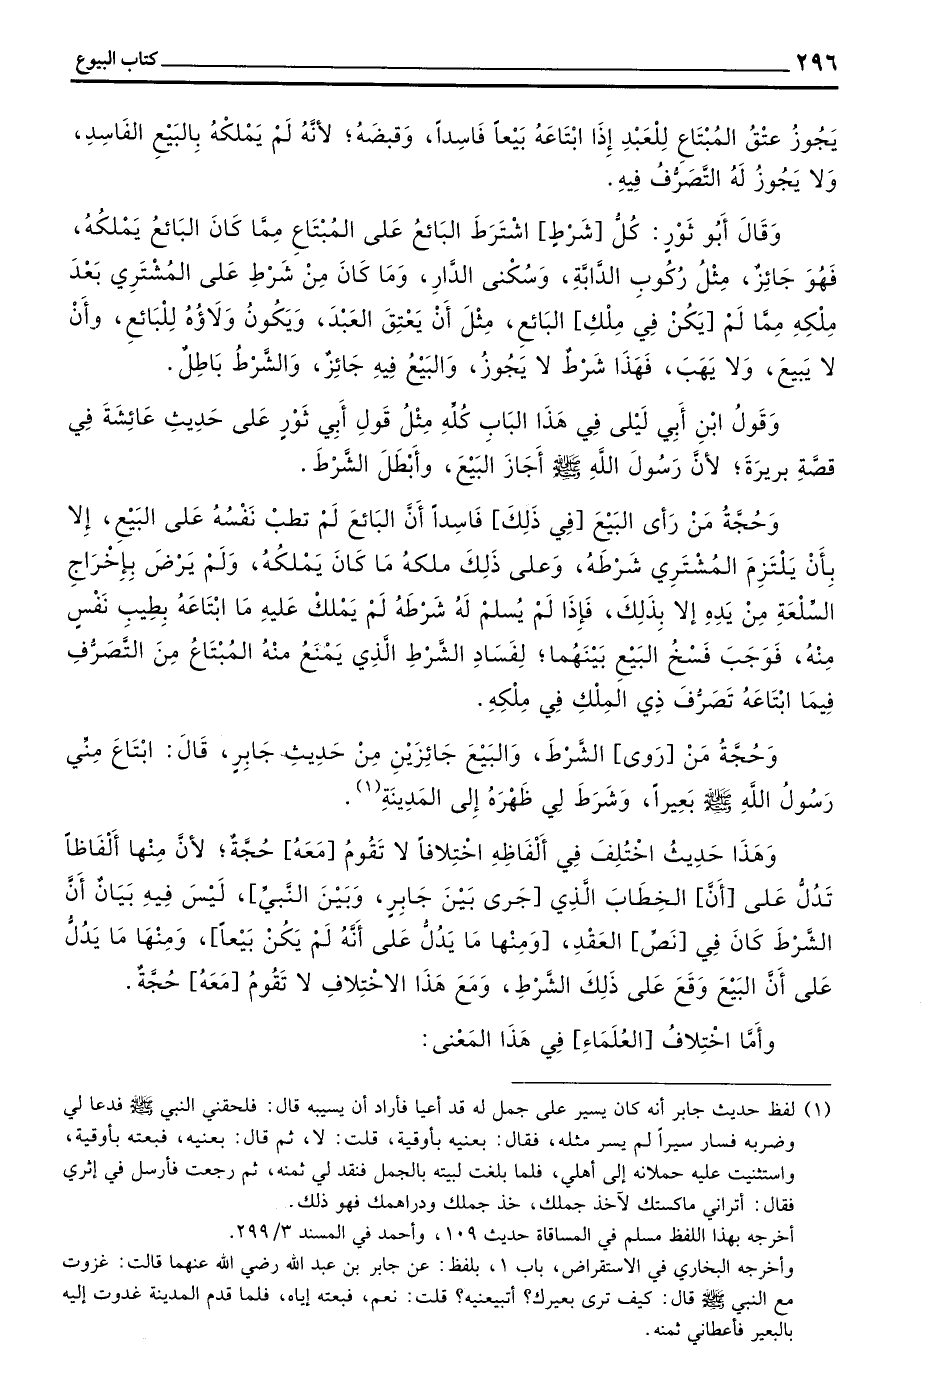 ٢٩٦ كتاب البيوع
يَجُوزُ عتْقُ المُبْتَاعِ لِلْعَبْدِ إِذَا ابْتَاعَهُ بَيْعاً فَاسِداً، وَقبضَهُ؛ لأنَّهُ لَمْ يَمْلكْهُ بِالبَيْعِ الفَاسِدِ،
وَلا يَجُوزُ لَهُ التَّصَرُّفُ فِيهِ.
وَقَالَ أَبُو ثَوْرٍ: كُلُّ [شَرْطٍ] اشْتَرَطَ البَائعُ عَلى المُبْتَاعِ مِمَّا كَانَ البَائعُ يَمْلكُهُ،
فَهُوَ جَائِزٌ، مِثْلُ رُكُوبِ الدَّابَّةِ، وَسُكْنى الدَّارِ، وَمَا كَانَ مِنْ شَرْطِ عَلى المُشْتَرِي بَعْدَ
مِلْكِهِ مِمَّا لَمْ [يَكُنْ فِي مِلْكِ] البَائعِ، مِثْلَ أَنْ يَعْتِقَ العَبْدَ، وَيَكُونُ وَلَاؤُهُ لِلْبَائعِ، وأَنْ
لا يَبِيعَ، وَلا يَهَبَ، فَهَذَا شَرْطٌ لا يَجُوزُ، وَالبَيْعُ فِيهِ جَائِزٌ، وَالشَّرْطُ بَاطِلٌ.
وَقَولُ ابْنِ أَبِي لَيْلى فِي هَذَا البَابِ كُلِّهِ مِثْلُ قَولِ أَبِي ثَوْرٍ عَلى حَدِيثِ عَائِشَةَ فِي
قصَّةِ بريرَةَ؛ لأنَّ رَسُولَ اللَّهِ ﷺ أَجَازَ البَيْعَ، وأَبْطَلَ الشَّرْطَ.
وَحُجَّةُ مَنْ رَأى البَيْعَ [فِي ذَلِكَ] فَاسِداً أَنَّ البَائعَ لَمْ تطبْ نَفْسُهُ عَلى البَيْعِ، إِلا
بِأَنْ يَلْتَزِمَ المُشْتَرِي شَرْطَهُ، وَعلى ذَلِكَ ملكهُ مَا كَانَ يَمْلكُهُ، وَلَمْ يَرْضَ بِإِخْرَاجِ
السِّلْعَةِ مِنْ يَدِهِ إلا بِذَلِكَ، فَإِذَا لَمْ يُسلمْ لَهُ شَرْطَهُ لَمْ يَمْلكْ عَليهِ مَا ابْتَاعَهُ بِطِيبِ نَفْسٍ
مِنْهُ، فَوَجَبَ فَسْخُ البَيْعِ بَيْنَهُما؛ لِفَسَادِ الشَّرْطِ الَّذِي يَمْنَعُ منْهُ المُبْتَاعُ مِنَ التَّصَرُّفِ
فِيمَا ابْتَاعَهُ تَصَرُّفَ ذِي المِلْكِ فِي مِلْكِهِ.
وَحُجَّةُ مَنْ [رَوى] الشَّرْطَ، وَالبَيْعَ جَائِزَيْنِ مِنْ حَدِيثِ جَابِرٍ، قَالَ: ابْتَاعَ مِنِّي
رَسُولُ اللَّهِ ﷺ بَعِيراً، وَشَرَطَ لِي ظَهْرَهُ إِلى المَدِينَةِ(١).
وَهَذَا حَدِيثُ اخْتُلِفَ فِي أَلْفَاظِهِ اخْتِلافاً لا تَقُومُ [مَعَهُ] حُجَّةٌ؛ لأنَّ مِنْها أَلْفَاظاً
تَدُلُّ عَلى [أَنَّ] الخِطَابَ الَّذِي [جَرى بَيْنَ جَابِرٍ، وَبَيْنَ النَّبيِّ]، لَيْسَ فِيهِ بَيَانٌ أَنَّ
الشَّرْطَ كَانَ فِي [نَصِّ] العَقْدِ، [وَمِنْها مَا يَدُلُّ عَلى أَنَّهُ لَمْ يَكُنْ بَيْعاً]، وَمِنْهَا مَا يَدُلُّ
عَلى أَنَّ البَيْعَ وَقَعَ عَلى ذَلِكَ الشَّرْطِ، وَمَعَ هَذَا الاخْتِلافِ لا تَقُومُ [مَعَهُ] حُجَّةٌ.
وأَمَّا اخْتِلافُ [العُلَمَاءِ] فِي هَذَا المَعْنى:
(١) لفظ حديث جابر أنه كان يسير على جمل له قد أعيا فأراد أن يسيبه قال: فلحقني النبي ﷺ فدعا لي
وضربه فسار سيراً لم يسر مثله، فقال: بعنيه بأوقية، قلت: لا، ثم قال: بعنيه، فبعته بأوقية،
واستثنيت عليه حملانه إلى أهلي، فلما بلغت لبيته بالجمل فنقد لي ثمنه، ثم رجعت فأرسل في إثري
فقال: أتراني ماكستك لآخذ جملك، خذ جملك ودراهمك فهو ذلك.
أخرجه بهذا اللفظ مسلم في المساقاة حديث ١٠٩، وأحمد في المسند ٢٩٩/٣.
وأخرجه البخاري في الاستقراض، باب ١، بلفظ: عن جابر بن عبد الله رضي الله عنهما قالت: غزوت
مع النبي ﷺ قال: كيف ترى بعيرك؟ أتبيعنيه؟ قلت: نعم، فبعته إياه، فلما قدم المدينة غدوت إليه
بالبعير فأعطاني ثمنه.